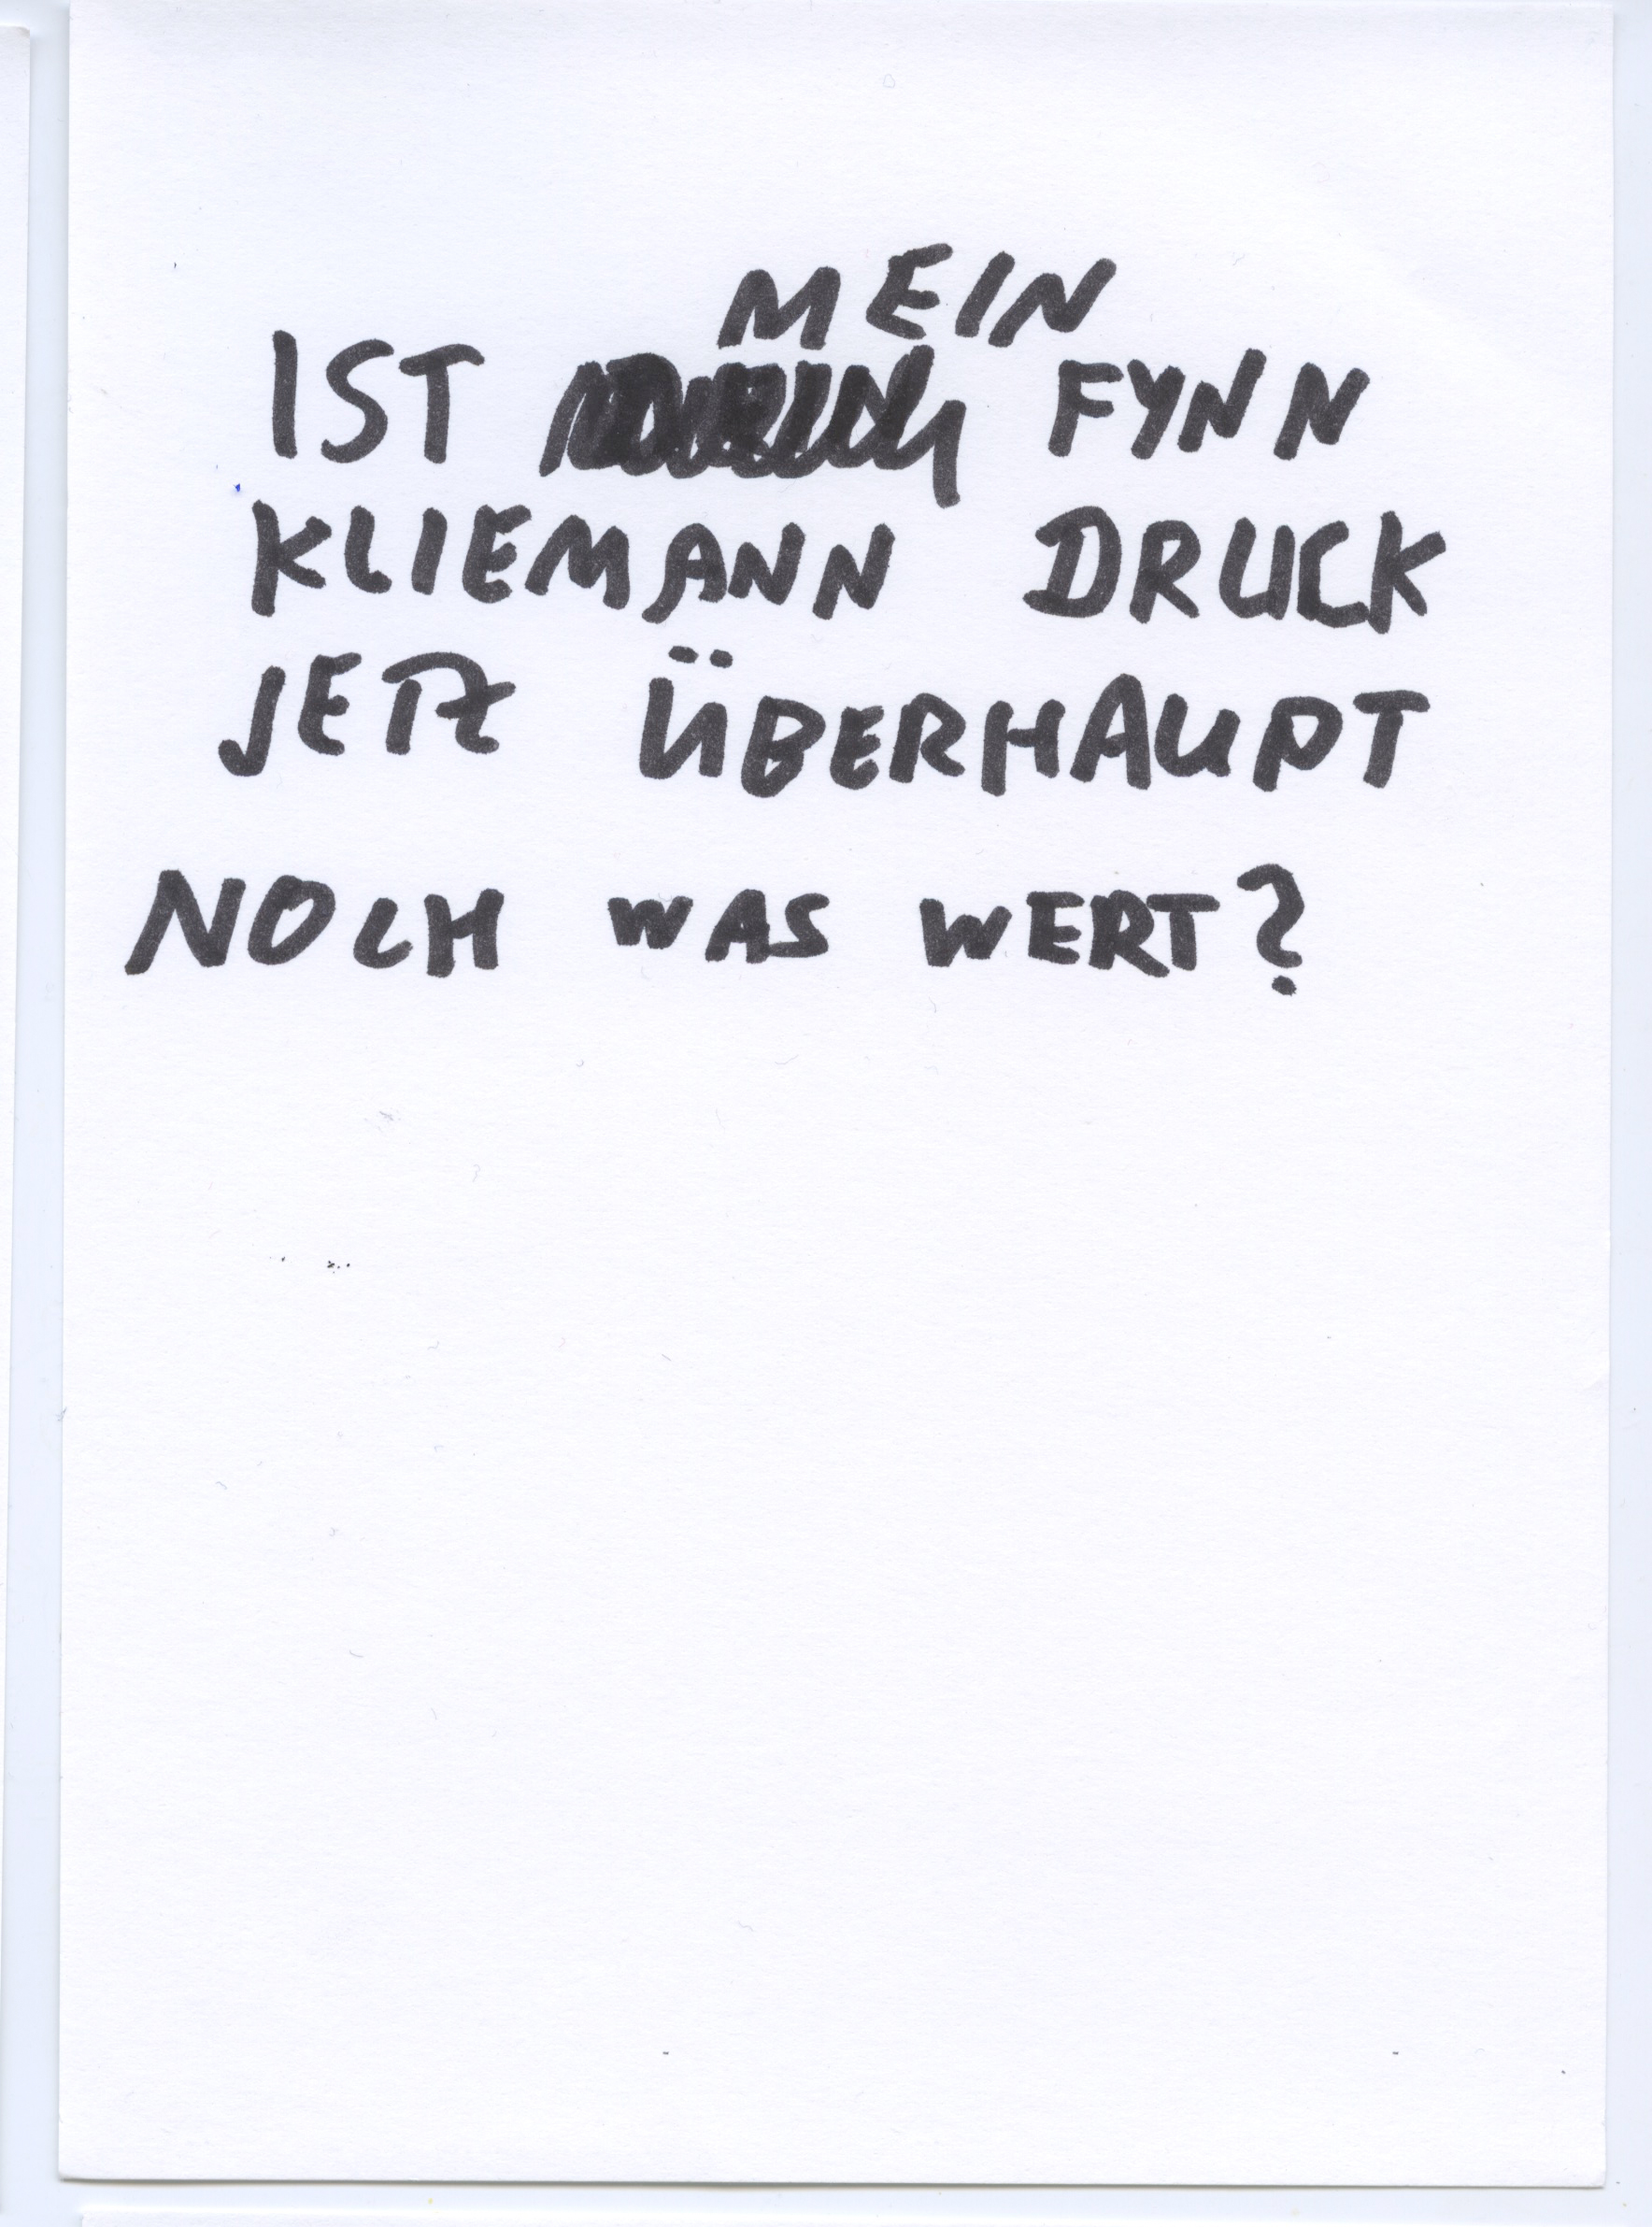 IST MEIN FYNN
KLIEMANN DRUCK
JETZ ÜBERHAUPT
NOCH WAS WERT?